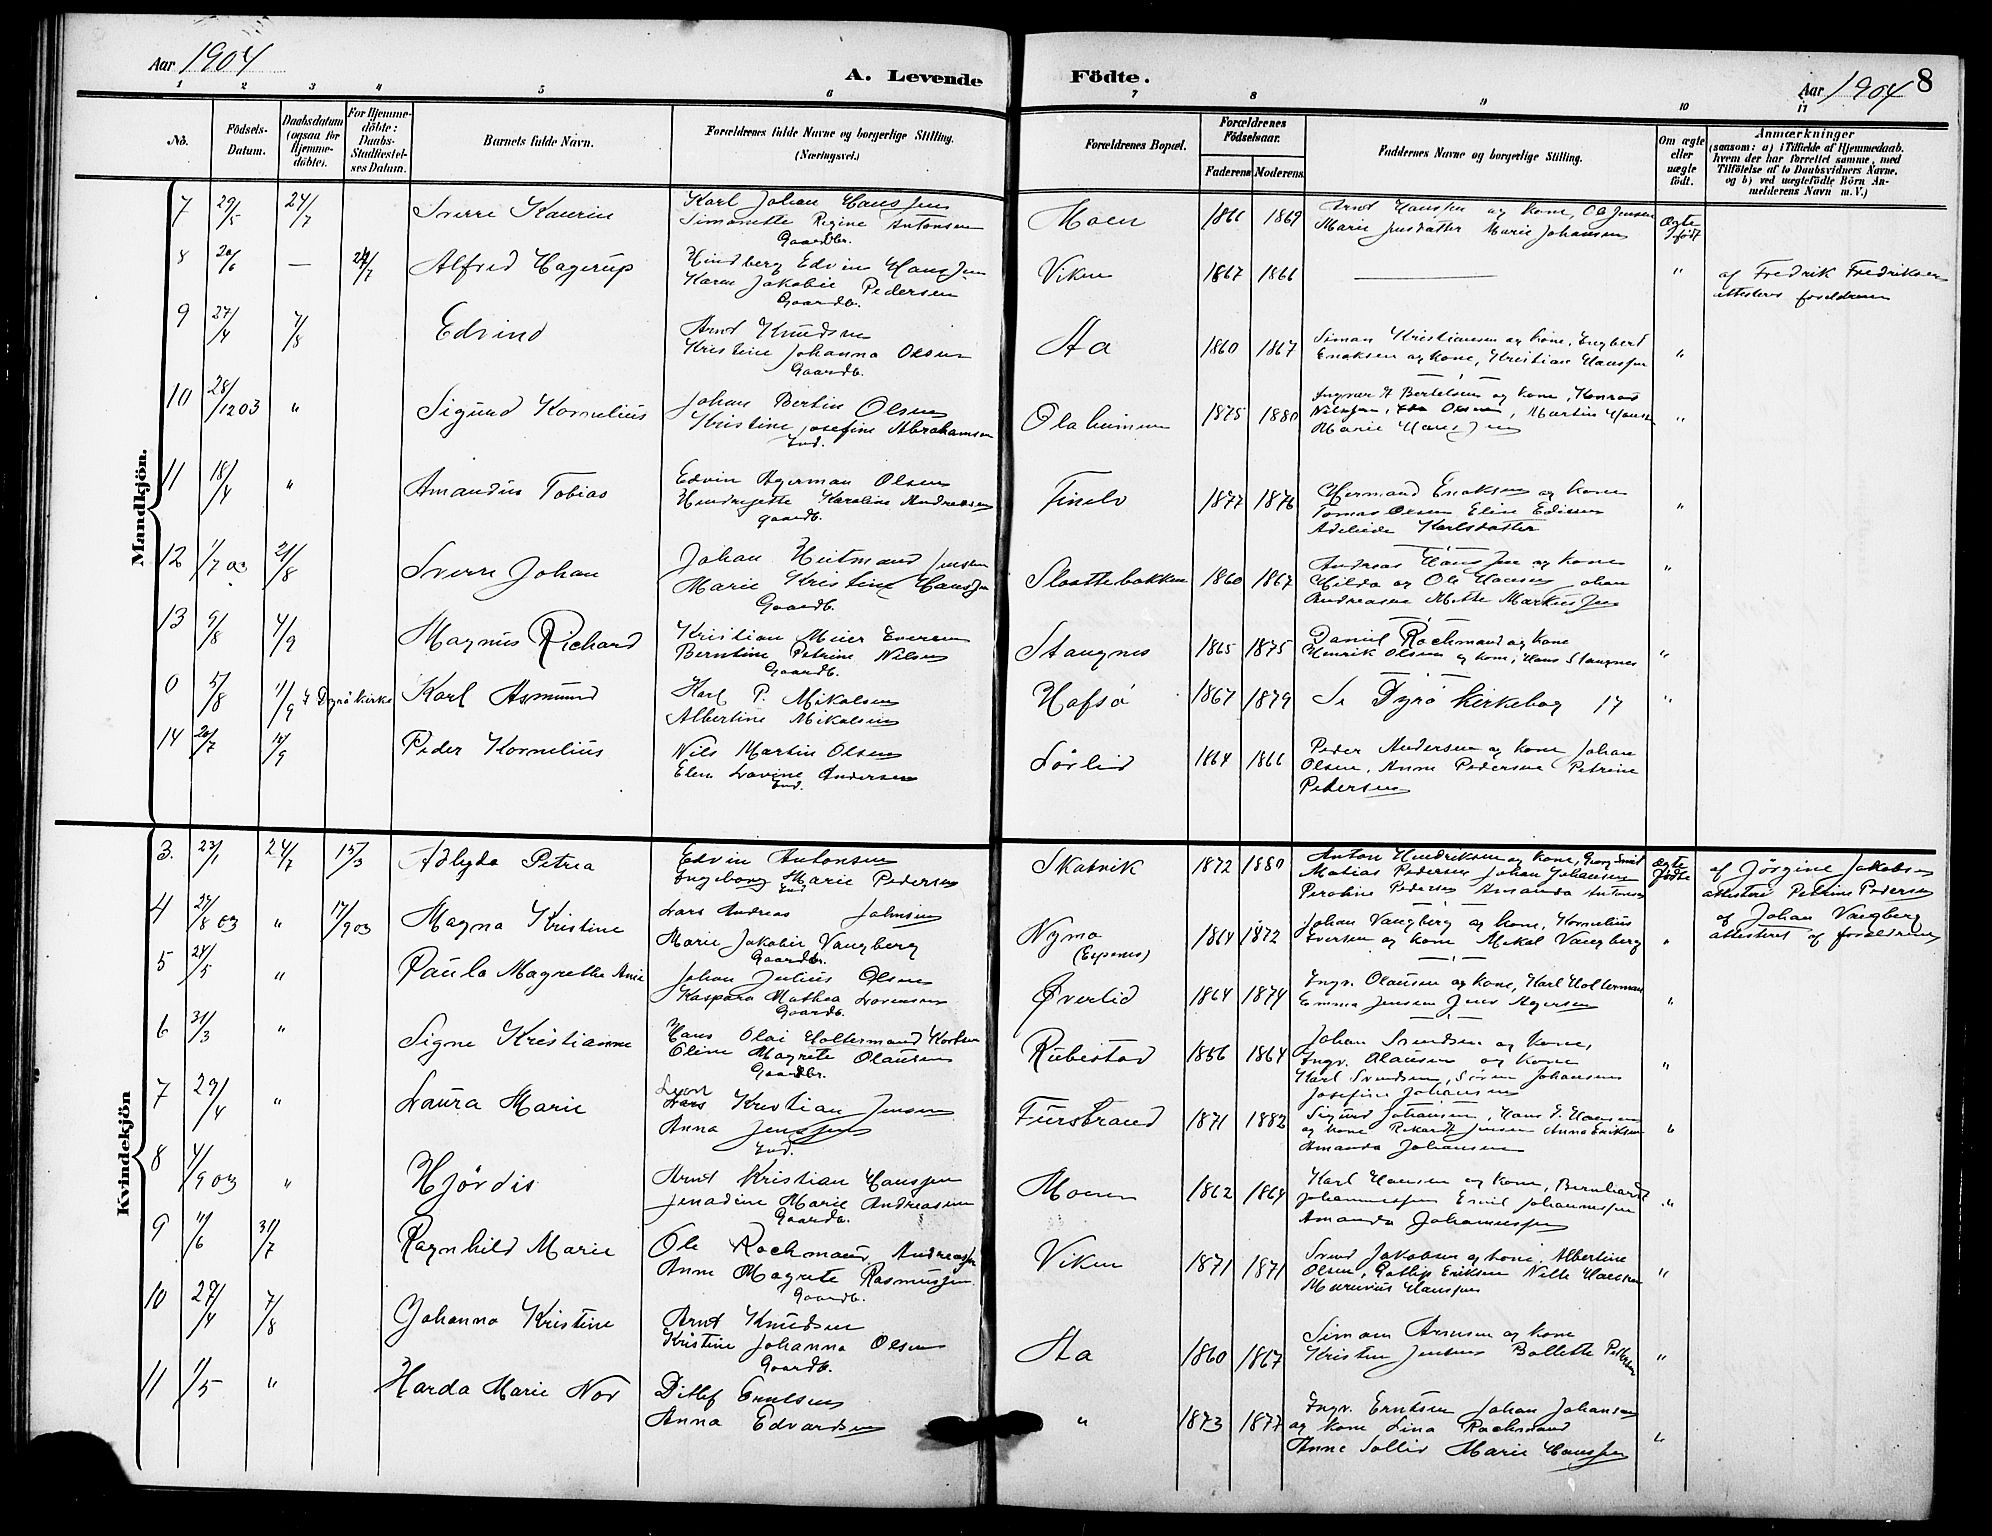 Aar 1904
A. Levende Födte.
Aar 1904
8
1 2 3 4 5 6 7 8 9 10 11
No.
Födsels-Datum.
Daabsdatum (ogsaa for Hjemme-döbte).
For Hjemme-döbte: Daabs-Stadfæstel-ses Datum.
Barnets fulde Navn.
Forældrenes fulde Navne og borgerlige Stilling. (Næringsvei.)
Forældrenes Bopæl.
Forældrenes Födselsaar.
Faderens Moderens
Faddernes Navne og borgerlige Stilling.
Om ægte eller uægte födt.
Anmærkninger
(saasom: a) i Tilfælde af Hjemmedaab.
hvem der har forrettet samme, med
Tilföielse af to Daabsvidners Navne.
og b) ved uægtefödte Börn An-
melderens Navn m. V.)
Mandkjön.
7 29/5 24/7 Sverre Kaurin
Karl Johan Hanssen
Simonette Regine Antonsen
Gaardbr.
Moen 1866 1869
Arnt Hanssen og kone, Ole Jensen
Marie Jensdatter Marie Johansen
Ægte født
8 20/6 — 24/7 Alfred Hagerup
Hindberg Edvin Hanssen
Karen Jakobie Pedersen
Gaardb.
Viken 1867 1866 — "
af Fredrik Fredriksen
attesteres forældrene
9 27/4 7/8 Edvind
Arnt Knudsen
Kristine Johanna Olsen
Gaardb.
Aa 1860 1867
Simon Kristiansen og kone, Engbert
Enoksen og kone, Kristian Hanssen
"
10 28/12 03 " Sigurd Kornelius
Johan Bertin Olsen
Kristine Josefine Abrahamsen
Ind.
Olaheimen 1875 1880
Ingvar A Bertelsen og kone, Konrad
Nilssen, Olsen, Martin Hanse
Marie Hanssen
"
11 18/4 " Amandus Tobias
Edvin Agerman Olsen
Hendrijette Karoline Andreasen
gaardb.
Finelv 1877 1876
Hermand Enoksen og kone
Tomas Olsen Eline Edissen
Adeleide Karlsdatter
"
12 1/7 03 21/8 Sverre Johan
Johan Heitmand Jensen
Marie Kristine Hanssen
Gaardb.
Slaattebakken 1860 1867
Andreas Hanssen og kone
Hilda og Ole Hansen Johan
Andreasen Mette Markussen
"
13 9/8 4/9 Magnus Richard
Kristian Meier Eversen
Berntine Petrine Nilsen
Gaardb.
Stangnes 1865 1875
Daniel Rochmand og kone
Henrik Olsen og kone, Hans Stangnes
"
0 5/8 11/9 i Dyrö kirke Karl Asmund
Karl P. Mikalsen
Albertine Mikalsen
Hofsö 1867 1879
Se Dyrö kirkebog 17
"
14 20/7 18/9 Peder Kornelius
Nils Martin Olsen
Elen Lovine Andersen
Ind.
Lörlid 1864 1866
Peder Andersen og kone Johan
Olsen, Anne Pedersen Petrine
Pedersen
Kvindekjön
3. 23/1 24/7 15/3 Adlyda Petrea
Edvin Antonsen
Ingeborg Marie Pedersen
Ind
Skatvik 1872 1880
Anton Hendriksen og kone, Georg Smit
Matias Pedersen Johan Johansen
Peroline Pedersen Amanda Antonsen
Ægte fødte
af Jørgine Jakobsen
attesteres Petrine Pedersen
4 27/8 03 " 17/9 03 Magna Kristine
Lars Andreas Johnsen
Marie Jakobie Vangberg
Gaardbr.
Nymo
(Espenes)
1864 1872
Johan Vangberg og kone, Kornelius
Iversen og kone Mikal Vangberg
"
af Johan Vangberg
attesteret af forældrene
5 24/5 " Paula Magrethe Anie
Johan Julius Olsen
Kaspara Mathea Lorensen
Gaardb.
Øverlid 1864 1874
Ingv. Olaussen og kone, Karl Holterman
Emma Jensen Jens Agersen
"
6 31/3 " Signe Kristianne
Hans Olai Holtermand Karlsen
Oline Magrete Olausen
Gaardbr.
Rubestad 1856 1864
Johan Svendsen og kone,
Ingv. Olaussen og kone
Karl Svendsen, Sören Johansen
Josefine Johansen
"
7 29/4 " Laura Marie
Leon
Lars Kristian Jensen
Anna Jenssen
Ind.
Furstrand 1871 1882
Sigurd Johansen, Hans E. Hansen
og kone Rikardt Jensen Anna Eriksen
Amanda Johansen
"
8 4/9 03 " Hjördis
Arnt Kristian Hanssen
Jenadine Marie Andreasen
Gaardb.
Moen 1862 1864
Karl Hansen og kone, Bernhardt
Johannessen Emil Johannessen
Amanda Johannessen
"
9 11/6 31/7 Ragnhild Marie
Ole Rochmand Andreassen
Anne Magrete Rasmussen
Gaardb.
Viken 1871 1871
Svend Jakobsen og kone, Albertine
Olsen, Gotlip Eriksen Nille Hansen
Marenius Hanssen
"
10 27/4 7/8 Johanna Kristine
Arnt Knudsen
Kristine Johanna Olsen
Gaardb.
Aa 1860 1867
Simon Arnesen og kone
Kristen Jensen Bollette Pettersen
"
11 11/5 " Harda Marie Nor
Ditlef Erntsen
Anna Edvardsen
" 1873 1877
Ingv. Erntsen Johan Johansen
og kone Lina Rochmand
Anne Sollid Marie Hanssen
"